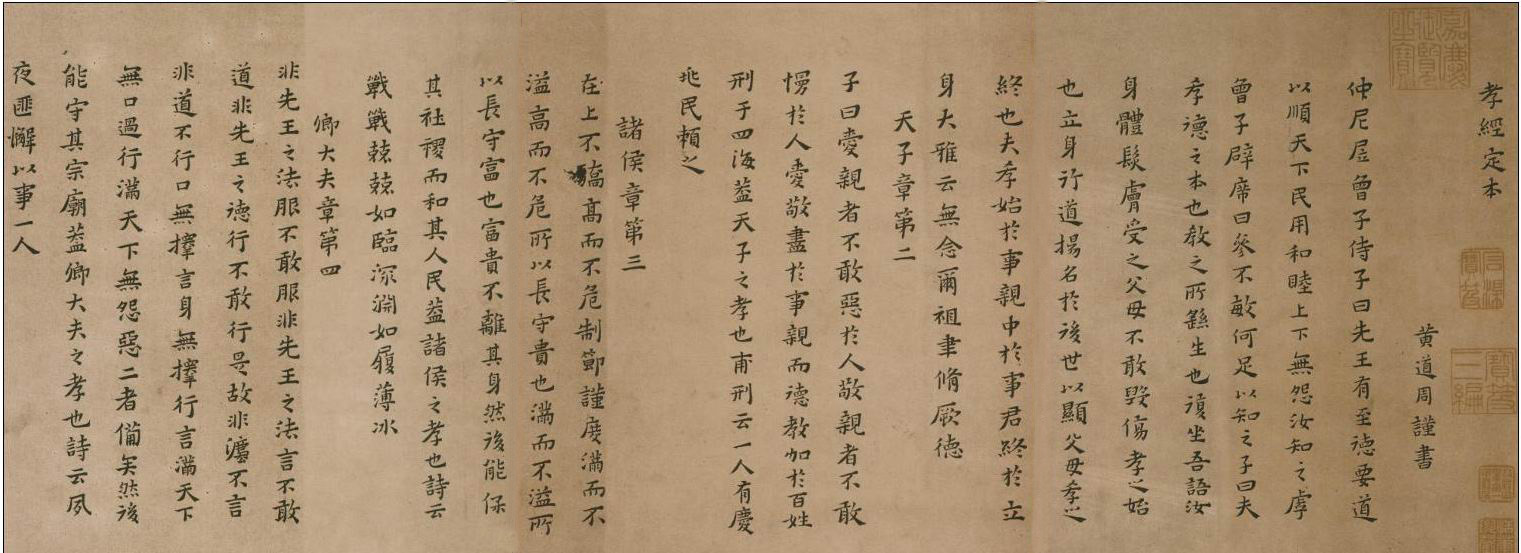 孝經定本
黃道周謹書
仲尼凥曾子侍子曰先王有至德要道
以順天下民用和睦上下無怨汝知之虖
曾子辟席曰參不敏何足以知之子曰夫
孝德之本也教之所繇生也復坐吾語汝
身體髮膚受之父母不敢毀傷孝之始
也立身行道揚名於後世以顯父母孝之
終也夫孝始於事親中於事君終於立
身大雅云無念爾祖聿脩厥德
天子章第二
子曰愛親者不敢惡於人敬親者不敢
慢於人愛敬盡於事親而德教加於百姓
刑于四海葢天子之孝也甫刑云一人有慶
兆民賴之
諸侯章第三
在上不驕高而不危制節謹度滿而不
溢高而不危所以長守貴也滿而不溢所
以長守富也富貴不離其身然後能保
其社稷而和其人民葢諸侯之孝也詩云
戰戰兢兢如臨深淵如履薄冰
卿大夫章第四
非先王之法服不敢服非先王之法言不敢
道非先王之德行不敢行是故非灋不言
非道不行口無擇言身無擇行言滿天下
無口過行滿天下無怨惡二者備矣然後
能守其宗廟葢卿大夫之孝也詩云夙
夜匪懈以事一人
嘉慶御覽之寶
寶笈三編